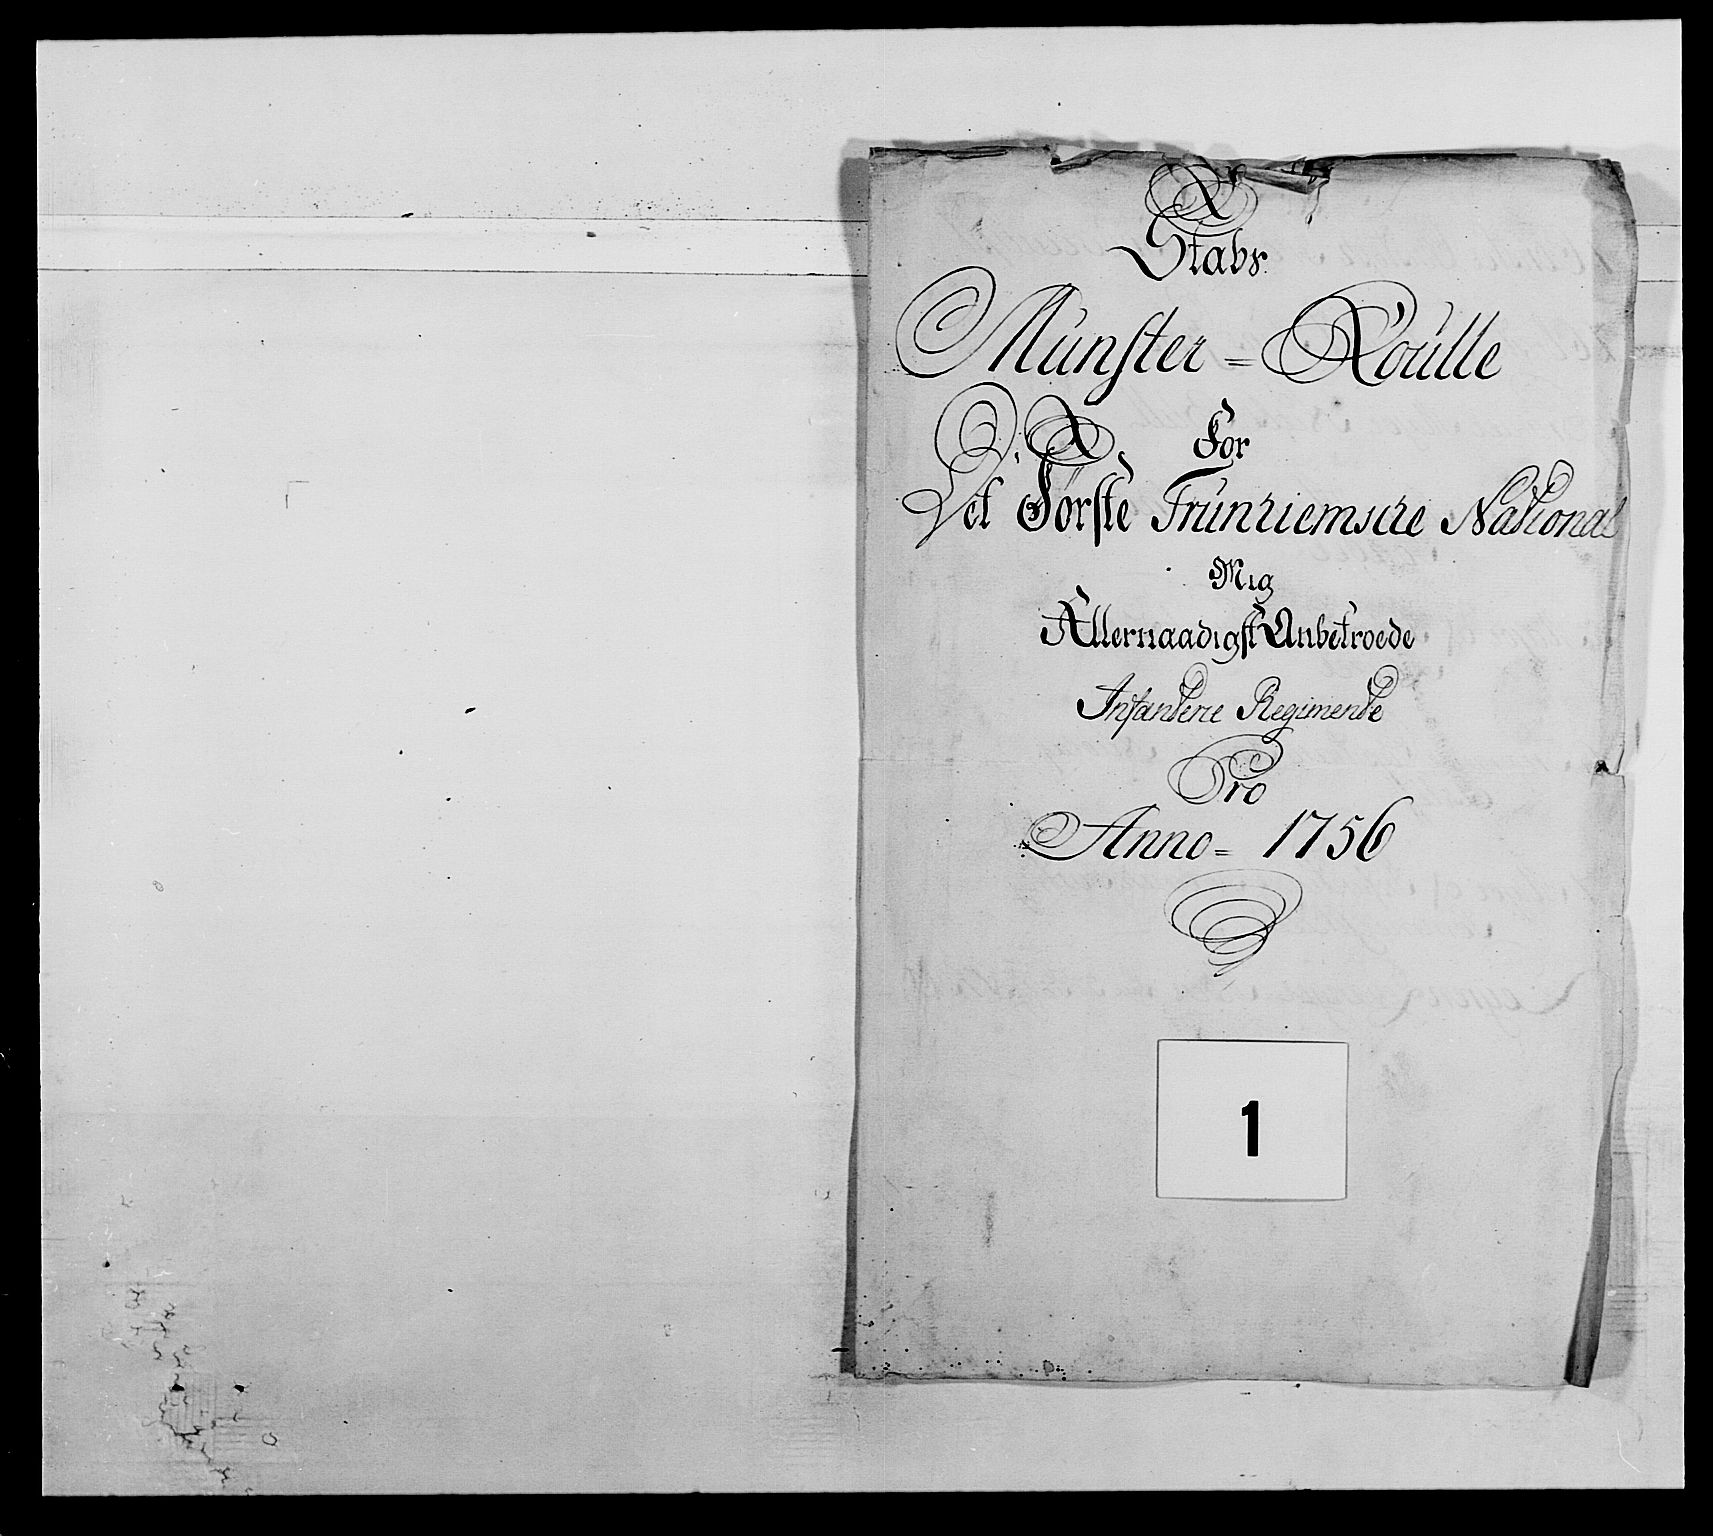 Stabs
Munster = Roulle
For
Det Første Trünhiemske National
Mig
Allernaadigst Anbetroede
Infanterie Regimente
Pro
Anno = 1756
1